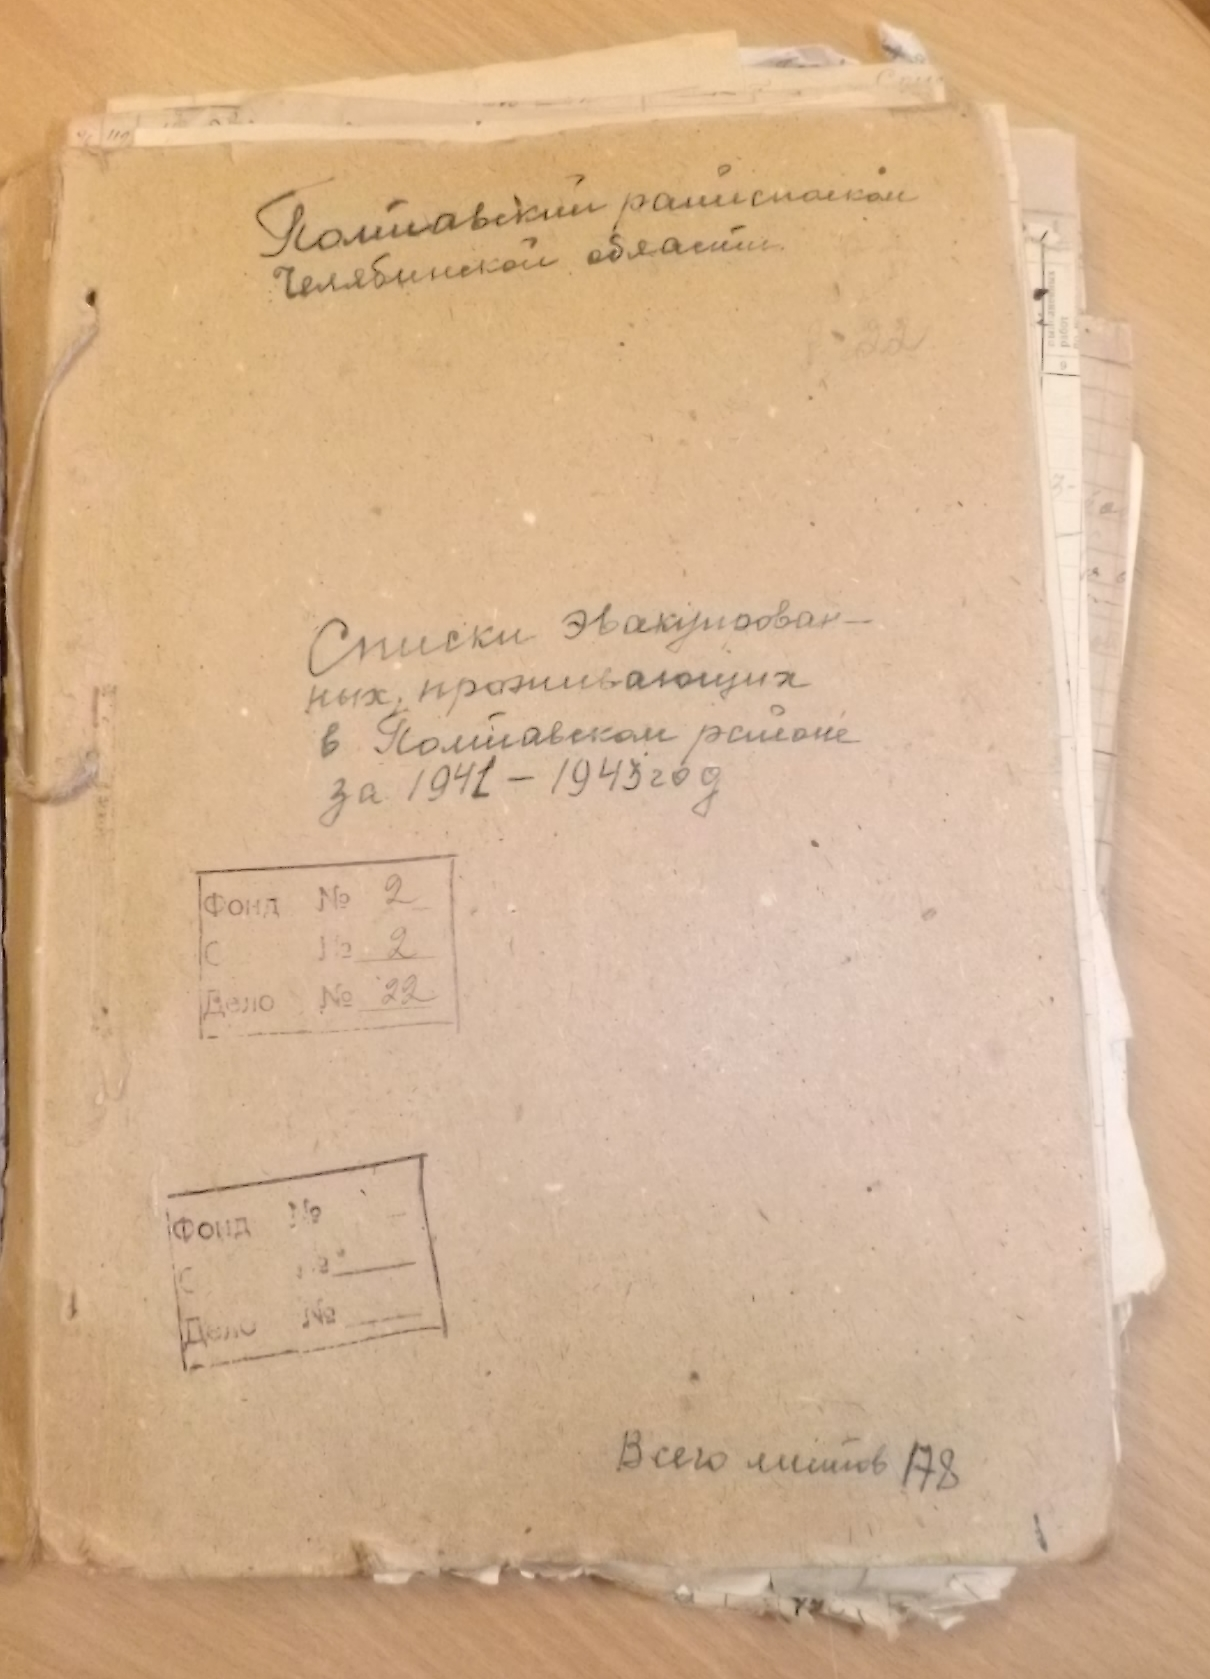 Полтавский райисполком
Челябинской области
Р-22
Списки эвакуирован-
ных, проживающих
в Полтавском районе
за 1941-1943 год
Фонд № 2
С № 2
Дело № 22
Фонд №
С №
Дело №
Всего листов 178